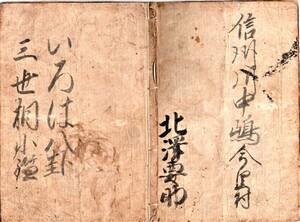 信州川中嶋今里村
北澤要助
いろは卦
三世相小鑑